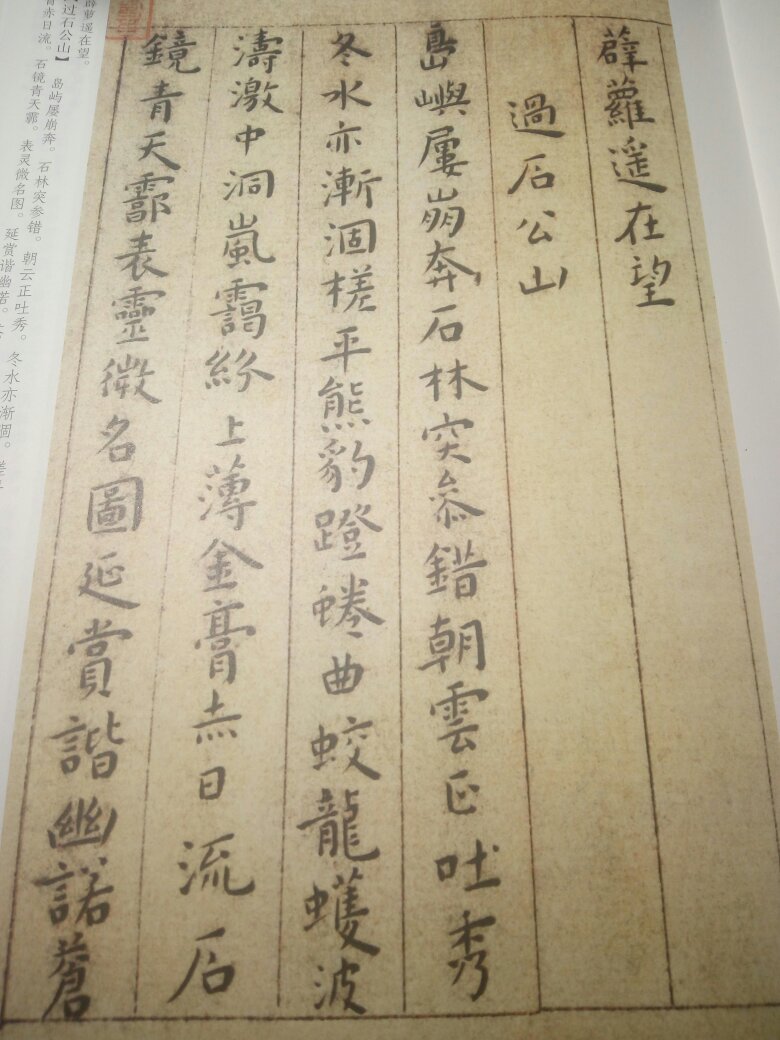 薜蘿遥在望
過石公山
島嶼屢崩奔石林突叅錯朝雲正吐秀
冬水亦漸涸槎平熊豹蹬蜷曲蛟龍蠖波
濤激中洞嵐靄紛上薄金膏赤日流石
鏡青天霩表靈微名圖延賞諧幽諾蒼
萝遥在望。
过石公山】 岛屿屡崩奔。石林突参错。朝云正吐秀。冬水亦渐涸。
赤日流。石镜青天霩。表灵微名图。延赏谐幽诺。